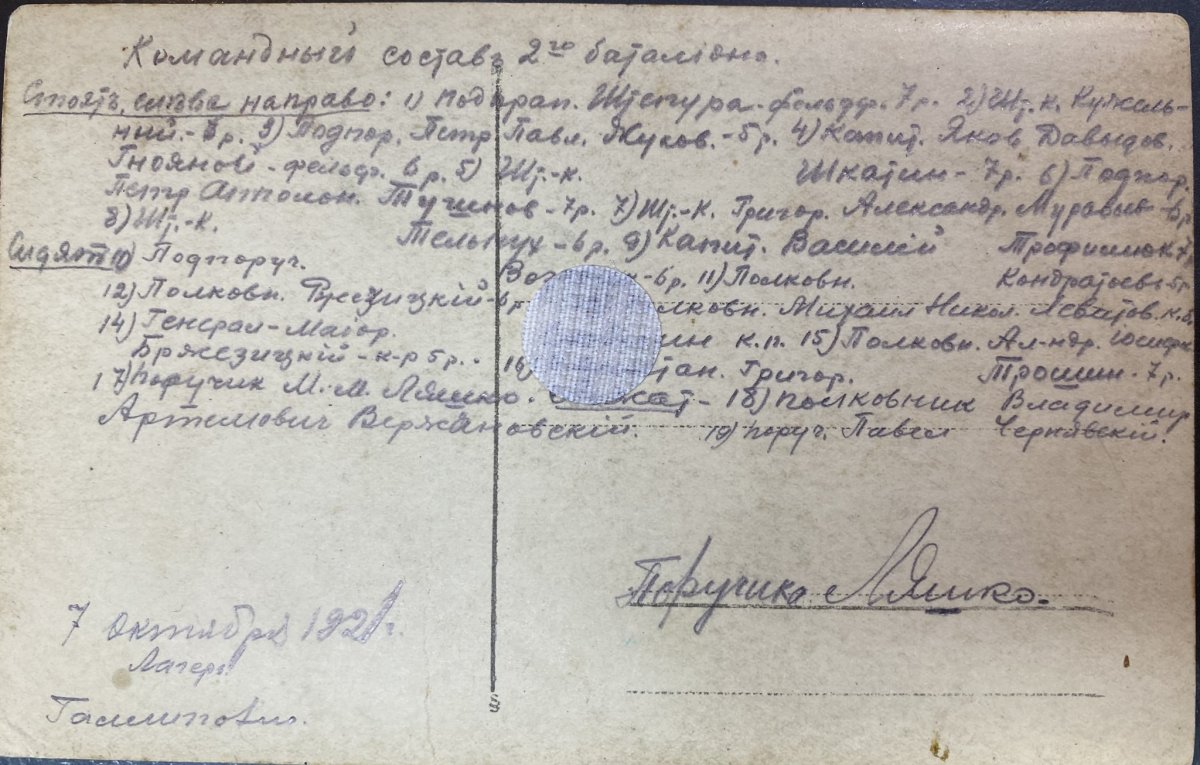 Командный составъ 2го баталіона.
Стоятъ, слѣва направо: 1) Подпрап. Штепура - фельдф. 7 р. 2) Шт.-к. Кужель-
ный - р. 3) Подпор. Петр Павл. Жуков. - 5 р. 4) Капит. Яков Давыдов.
Гнояной - фельдф. 6 р. 5) Шт.-к. Шкатин - 7 р. 6) Подпор.
Петр Тушинов - 7 р. 7) Шт.-К. Григор. Александр. Муравьев - 6 р.
8) Шт.-К. Тельпух - 6 р. 9) Капит. Василій Трофимюк 7
Сидятъ Подпоруч. - 6 р. 11) Полковн. Кондратьевъ - 5 р.
12) Полковн. Михаил Никол. Левитов. к.
14) Генерал-Маіор. к.п. 15) Полковн. Ал-ндр.
Бржезицкій - к-р 5 р. Григор. Трошин - 7 р.
17) Поручик М. М. Ляшко. 18) полковник Владимир
Артемович Вержановскій. 19) поруч. Павел Чернявскій.
Поручикъ Ляшко.
7 Октября 1921 г.
Лагерь
Галлиполи.